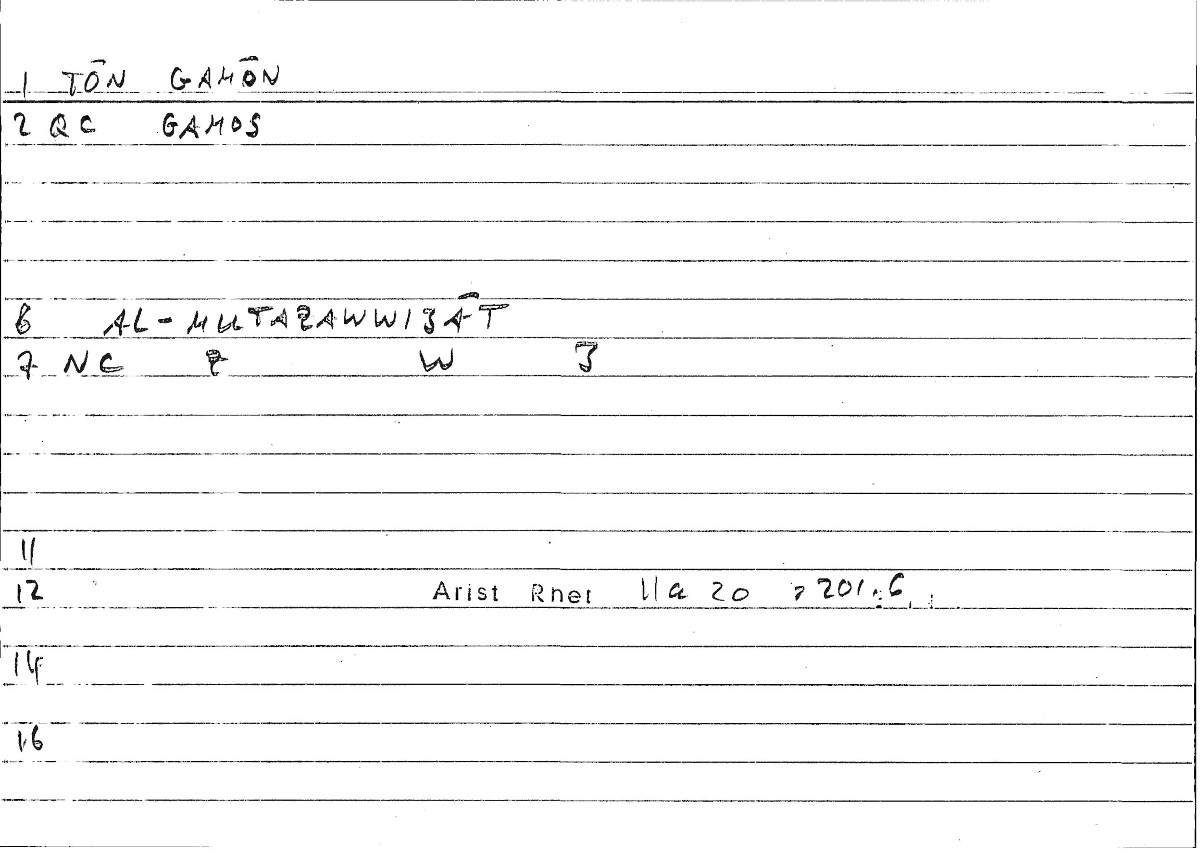 1 TŌN GAMŌN
2 QC GAMOS
6 AL-MUTAZAWWIǦĀT
7 NC Z W J
11
12 Arist Rhet 11a 20 = 201.6
14
16